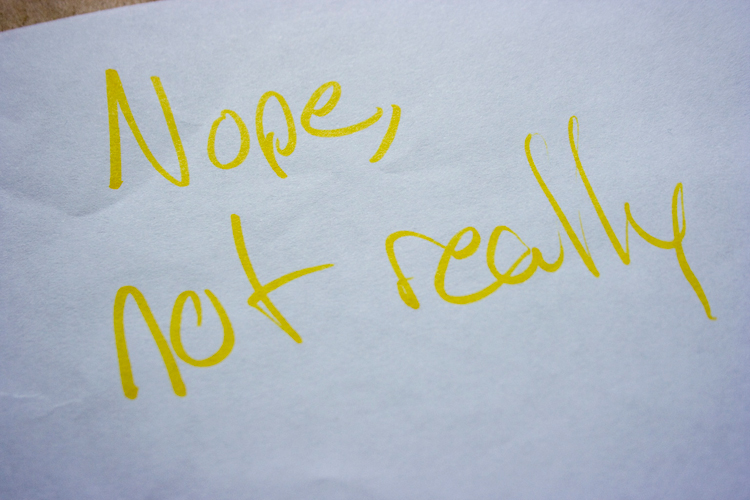 Nope,
not really